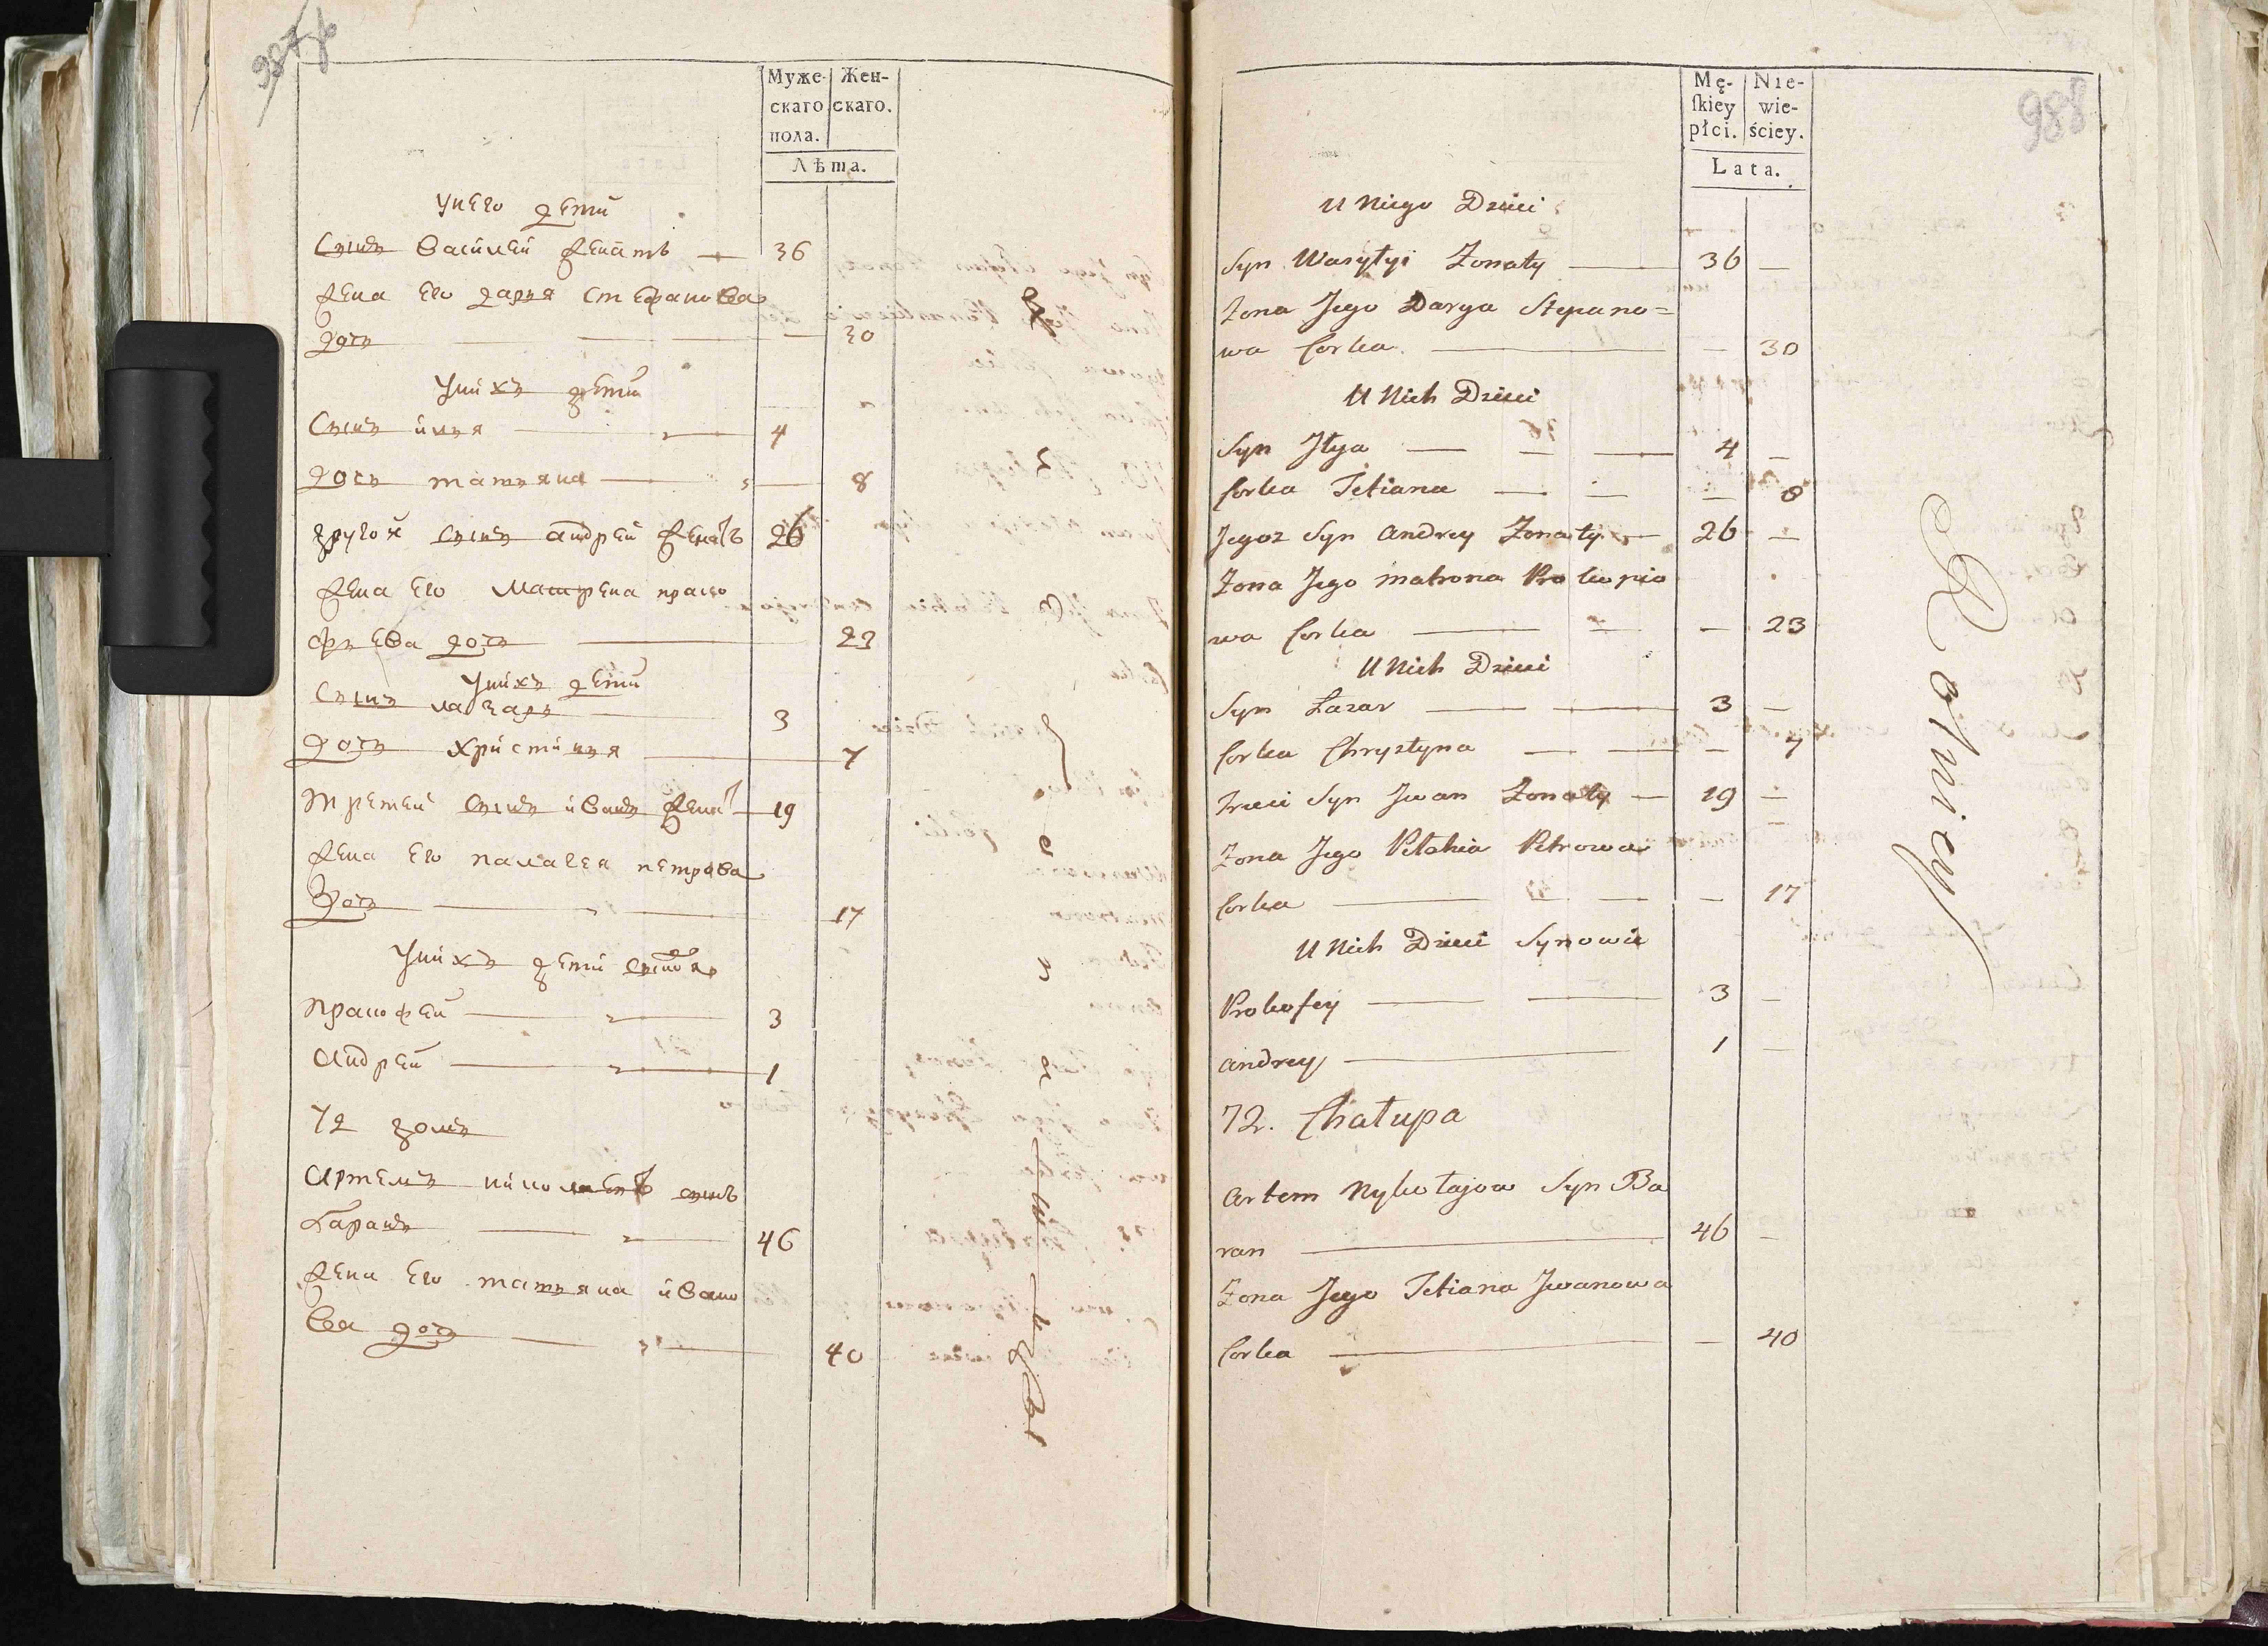 987 об
Муже- Жен-
скаго скаго.
пола.
Лѣта.
У него дети
Сынъ Василей женатъ — 36
Жена его Дарья Степанова
дочь — 30
У нихъ дети
Сынъ Илья — 4
дочь Татьяна — 8
другой сынъ Андрей женатъ 26
Жена его Матрена Проко
фьева дочь — 23
У нихъ дети
Сынъ Лазарь — 3
дочь Христиня — 7
Третей сынъ Иванъ женатъ — 19
Жена его Палагея Петрова
дочь — 17
У нихъ дети сыновя
Прокофей — 3
Андрей — 1
72 домъ
Артемъ Николаевъ сынъ
Баранъ — 46
Жена его Татьяна Ивано
ва дочь — 40
988
Mę- Nie-
ſkiey wie-
płci. ściey.
Lata.
U Niego Dzieci
Syn Wasyłyi Żonaty — 36 —
Żona Jego Darya Stepano=
wa Corka — — 30
U Nich Dzieci
Syn Jłya — 4 —
Corka Tetiana — — 8
Jegoz Syn Andrey Żonaty — 26 —
Żona Jego Matrona Prokopio
wa Corka — — 23
U Nich Dzieci
Syn Łazar — 3 —
Corka Chrystyna — — 7
Trzeci Syn Jwan Żonaty — 19 —
Żona Jego Pełahia Petrowa
Corka — — 17
U Nich Dzieci Synowie
Prokofey — 3 —
Andrey — 1 —
72. Chałupa
Artem Nykołajow Syn Ba
ran — 46 —
Żona Jego Tetiana Jwanowa
Corka — — 40
Rolnicy